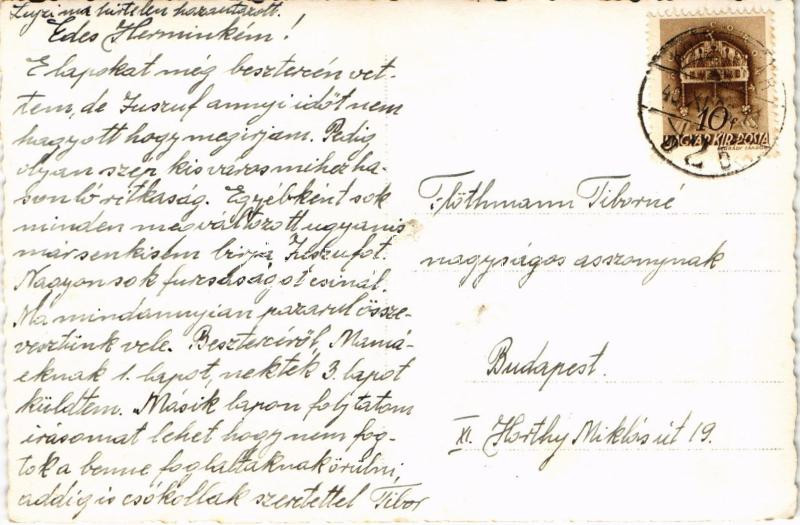 Luyzi ma hirtelen hazautazott.
Édes Herminkém!
E lapokat még beszterczén vet-
tem, de Juszuf annyi időt nem
hagyott hogy megirjam. Pedig
olyan szép kis város mihez ha-
sonló ritkaság. Egyébként sok
minden megváltozott ugyanis
már senkisem birja Juszufot.
Nagyon sok furcsaságot csinál.
Ma mindannyian pazarul össze-
vesztünk vele. Beszterczéről, Mamá-
éknak 1. lapot, nektek 3. lapot
küldtem. Másik lapon folytatom
irásomat lehet hogy nem fog-
tok a benne foglaltaknak örülni,
addig is csókollak szeretettel Tibor
Flóthmann Tiborné
nagyságos asszonynak
Budapest.
XI. Horthy Miklós út 19.
10 f
MAGYAR KIR. POSTA